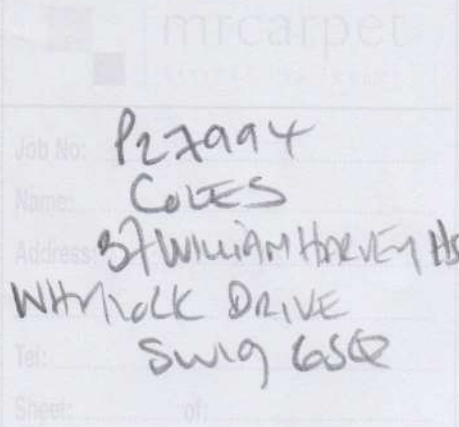 mrcarpet
Job No: P27994
Name: COLES
Address: 37 WILLIAM HARVEY HS
WHYLOCK DRIVE
Tel: SW19 6SQ
Sheet: of: